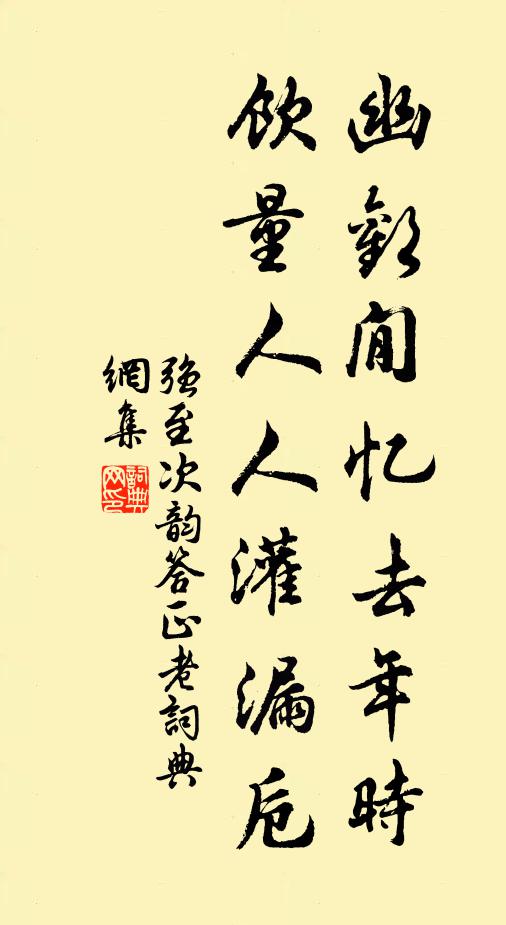 幽歡閒忆去年時
飲量人人灌漏卮
強至次韵答正老詞典
網集
詞典
网印